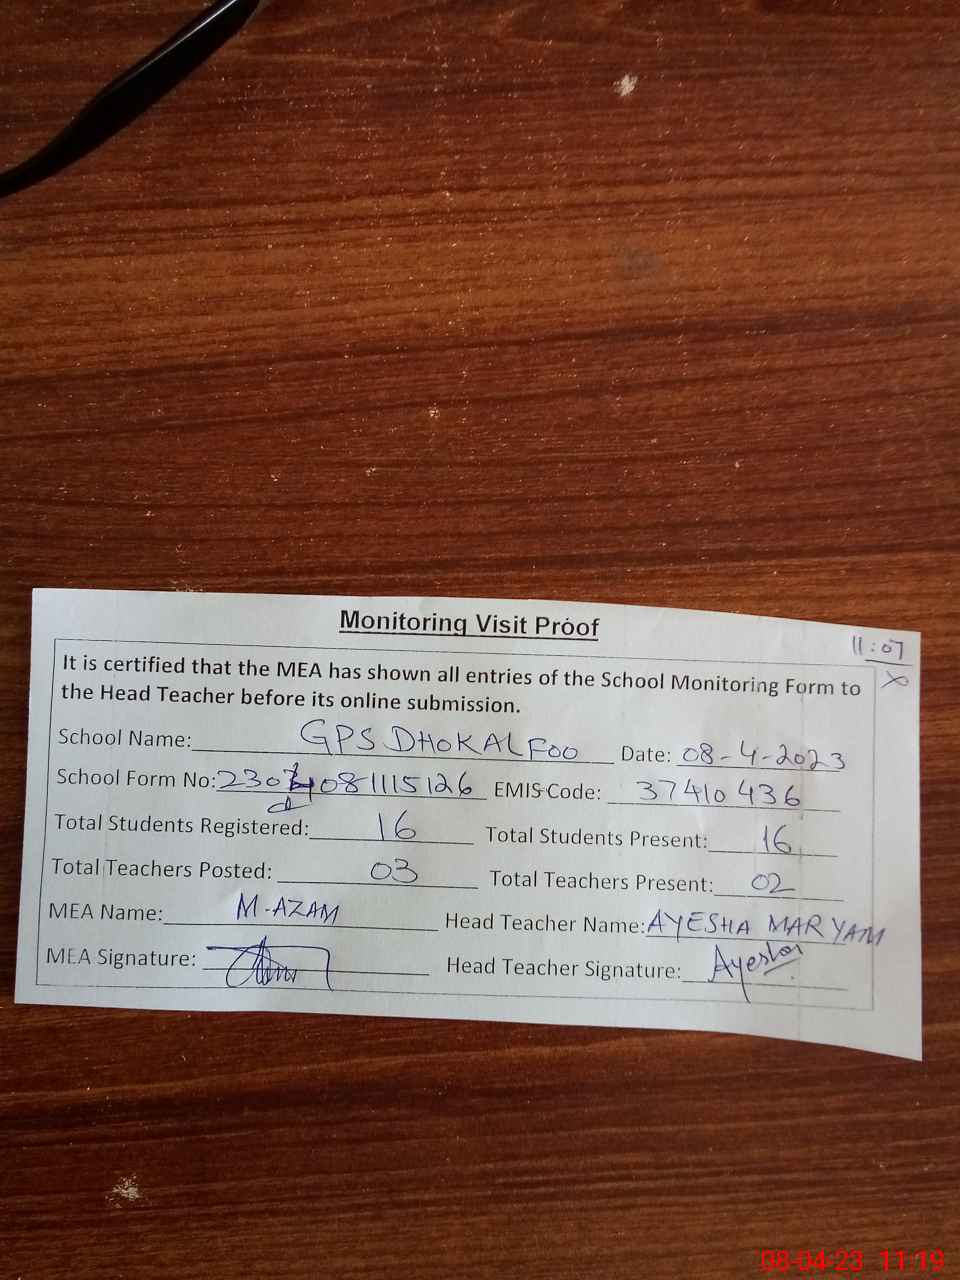 Monitoring Visit Proof
11:07
It is certified that the MEA has shown all entries of the School Monitoring Form to
the Head Teacher before its online submission.
School Name: GPS DHOKAL FOO Date: 08-4-2023
School Form No: EMIS Code: 37410436
Total Students Registered: 16 Total Students Present: 16
Total Teachers Posted: 03 Total Teachers Present: 02
MEA Name: M-AZAM Head Teacher Name: AYESHA MARYAM
MEA Signature: Head Teacher Signature: Ayesha
08-04-23 11:19